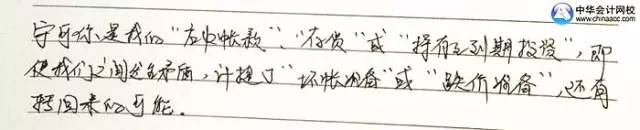 中华会计网校
www.chinaacc.com
宁可你是我的“应收帐款”、“存货”或“持有至到期投资”，即
使我们之间发生矛盾，计提了“坏帐准备”或“跌价准备”，还有
转回来的可能.